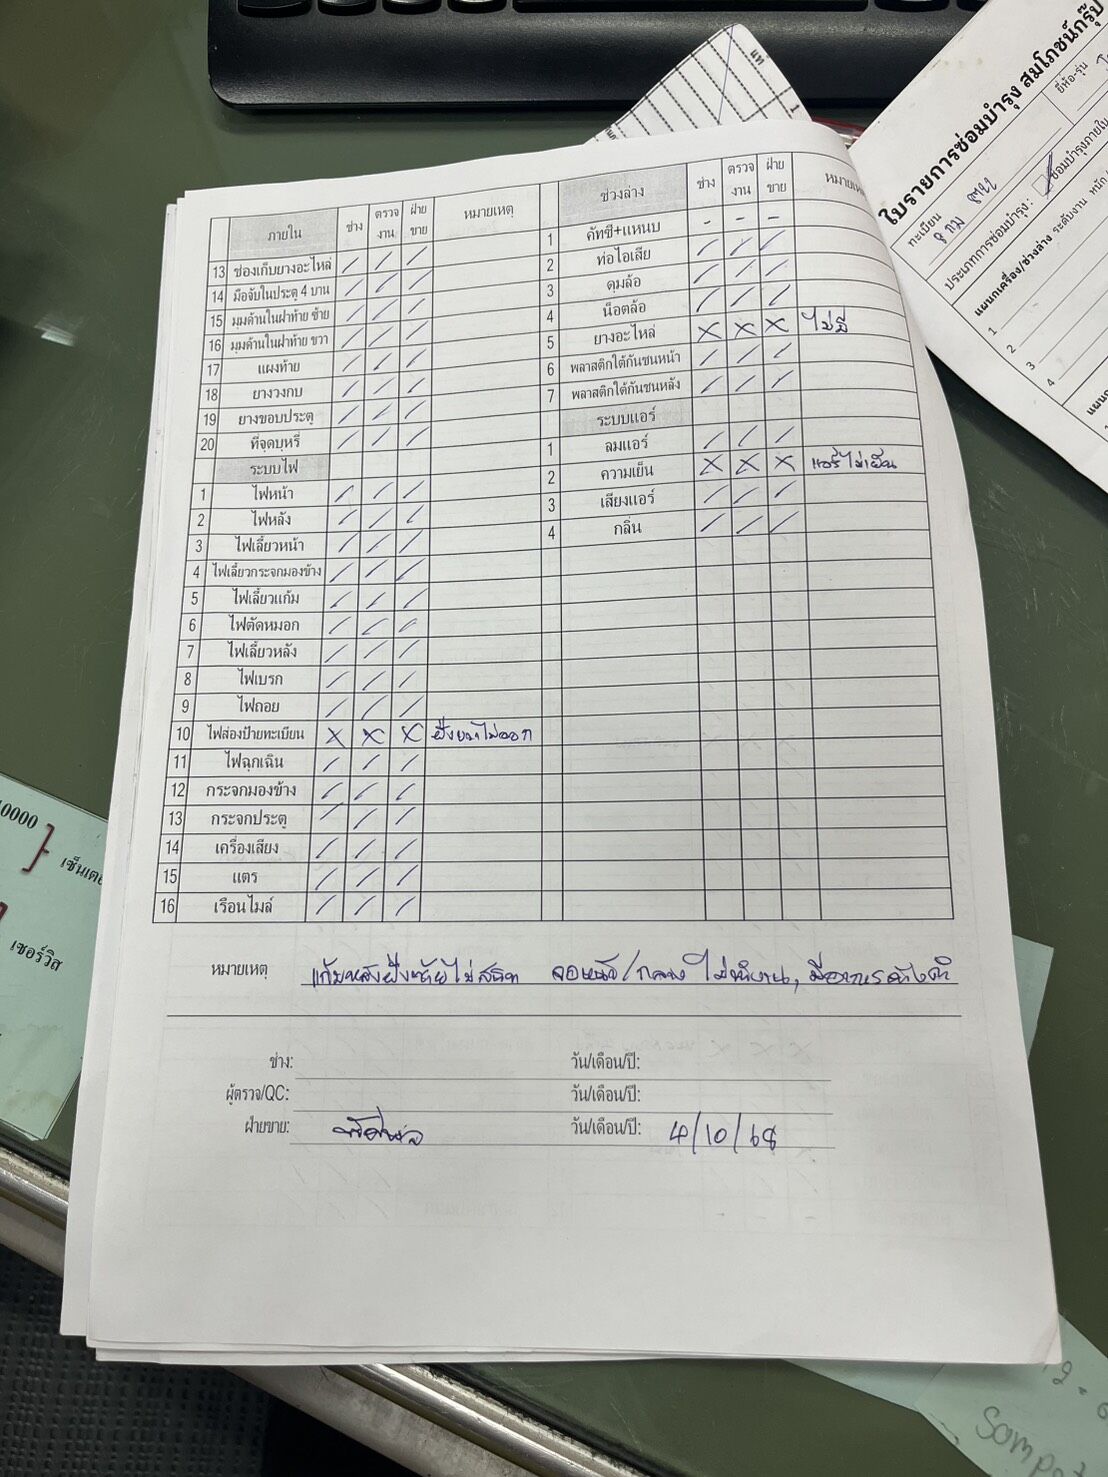 ใบรายการซ่อมบำรุง สมโภชน์กรุ๊ป
ทะเบียน
ยี่ห้อ-รุ่น
ประเภทการซ่อมบำรุง: ซ่อมบำรุงภายใน
แผนกเครื่อง/ช่วงล่าง ระดับงาน หนัก
1
2
3
4
ภายใน ช่าง ตรวจงาน ฝ่ายขาย หมายเหตุ
13 ช่องเก็บยางอะไหล่ / / /
14 มือจับในประตู 4 บาน / / /
15 มุมด้านในฝาท้าย ซ้าย / / /
16 มุมด้านในฝาท้าย ขวา / / /
17 แผงท้าย / / /
18 ยางวงกบ / / /
19 ยางขอบประตู / / /
20 ที่จุดบุหรี่ / / /
ระบบไฟ
1 ไฟหน้า / / /
2 ไฟหลัง / / /
3 ไฟเลี้ยวหน้า / / /
4 ไฟเลี้ยวกระจกมองข้าง / / /
5 ไฟเลี้ยวแก้ม / / /
6 ไฟตัดหมอก / / /
7 ไฟเลี้ยวหลัง / / /
8 ไฟเบรก / / /
9 ไฟถอย / / /
10 ไฟส่องป้ายทะเบียน X X X ฝั่งขวาไม่ออก
11 ไฟฉุกเฉิน / / /
12 กระจกมองข้าง / / /
13 กระจกประตู / / /
14 เครื่องเสียง / / /
15 แตร / / /
16 เรือนไมล์ / / /
ช่วงล่าง ช่าง ตรวจงาน ฝ่ายขาย หมายเหตุ
1 คัทซี+แหนบ - - -
2 ท่อไอเสีย / / /
3 ดุมล้อ / / /
4 น็อตล้อ / / /
5 ยางอะไหล่ X X X ไม่มี
6 พลาสติกใต้กันชนหน้า / / /
7 พลาสติกใต้กันชนหลัง / / /
ระบบแอร์
1 ลมแอร์ / / /
2 ความเย็น X X X แอร์ไม่เย็น
3 เสียงแอร์ / / /
4 กลิ่น / / /
หมายเหตุ แก้มหลังฝั่งซ้ายไม่สนิท จอหน้า/กลาง ไม่ทำงาน, มีอาการ
ช่าง: วัน/เดือน/ปี:
ผู้ตรวจ/QC: วัน/เดือน/ปี:
ฝ่ายขาย: วัน/เดือน/ปี: 4/10/68
0000
เซอร์วิส